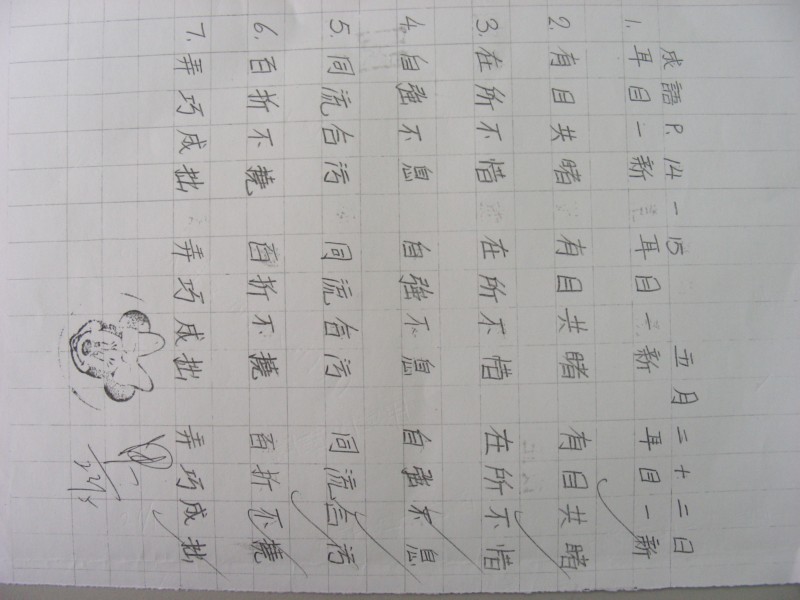 成語 P.14-15 五月二十二日
1. 耳目一新 耳目一新 耳目一新
2. 有目共睹 有目共睹 有目共睹
3. 在所不惜 在所不惜 在所不惜
4. 自強不息 自強不息 自強不息
5. 同流合污 同流合污 同流合污
6. 百折不撓 百折不撓 百折不撓
7. 弄巧成拙 弄巧成拙 弄巧成拙
22/5